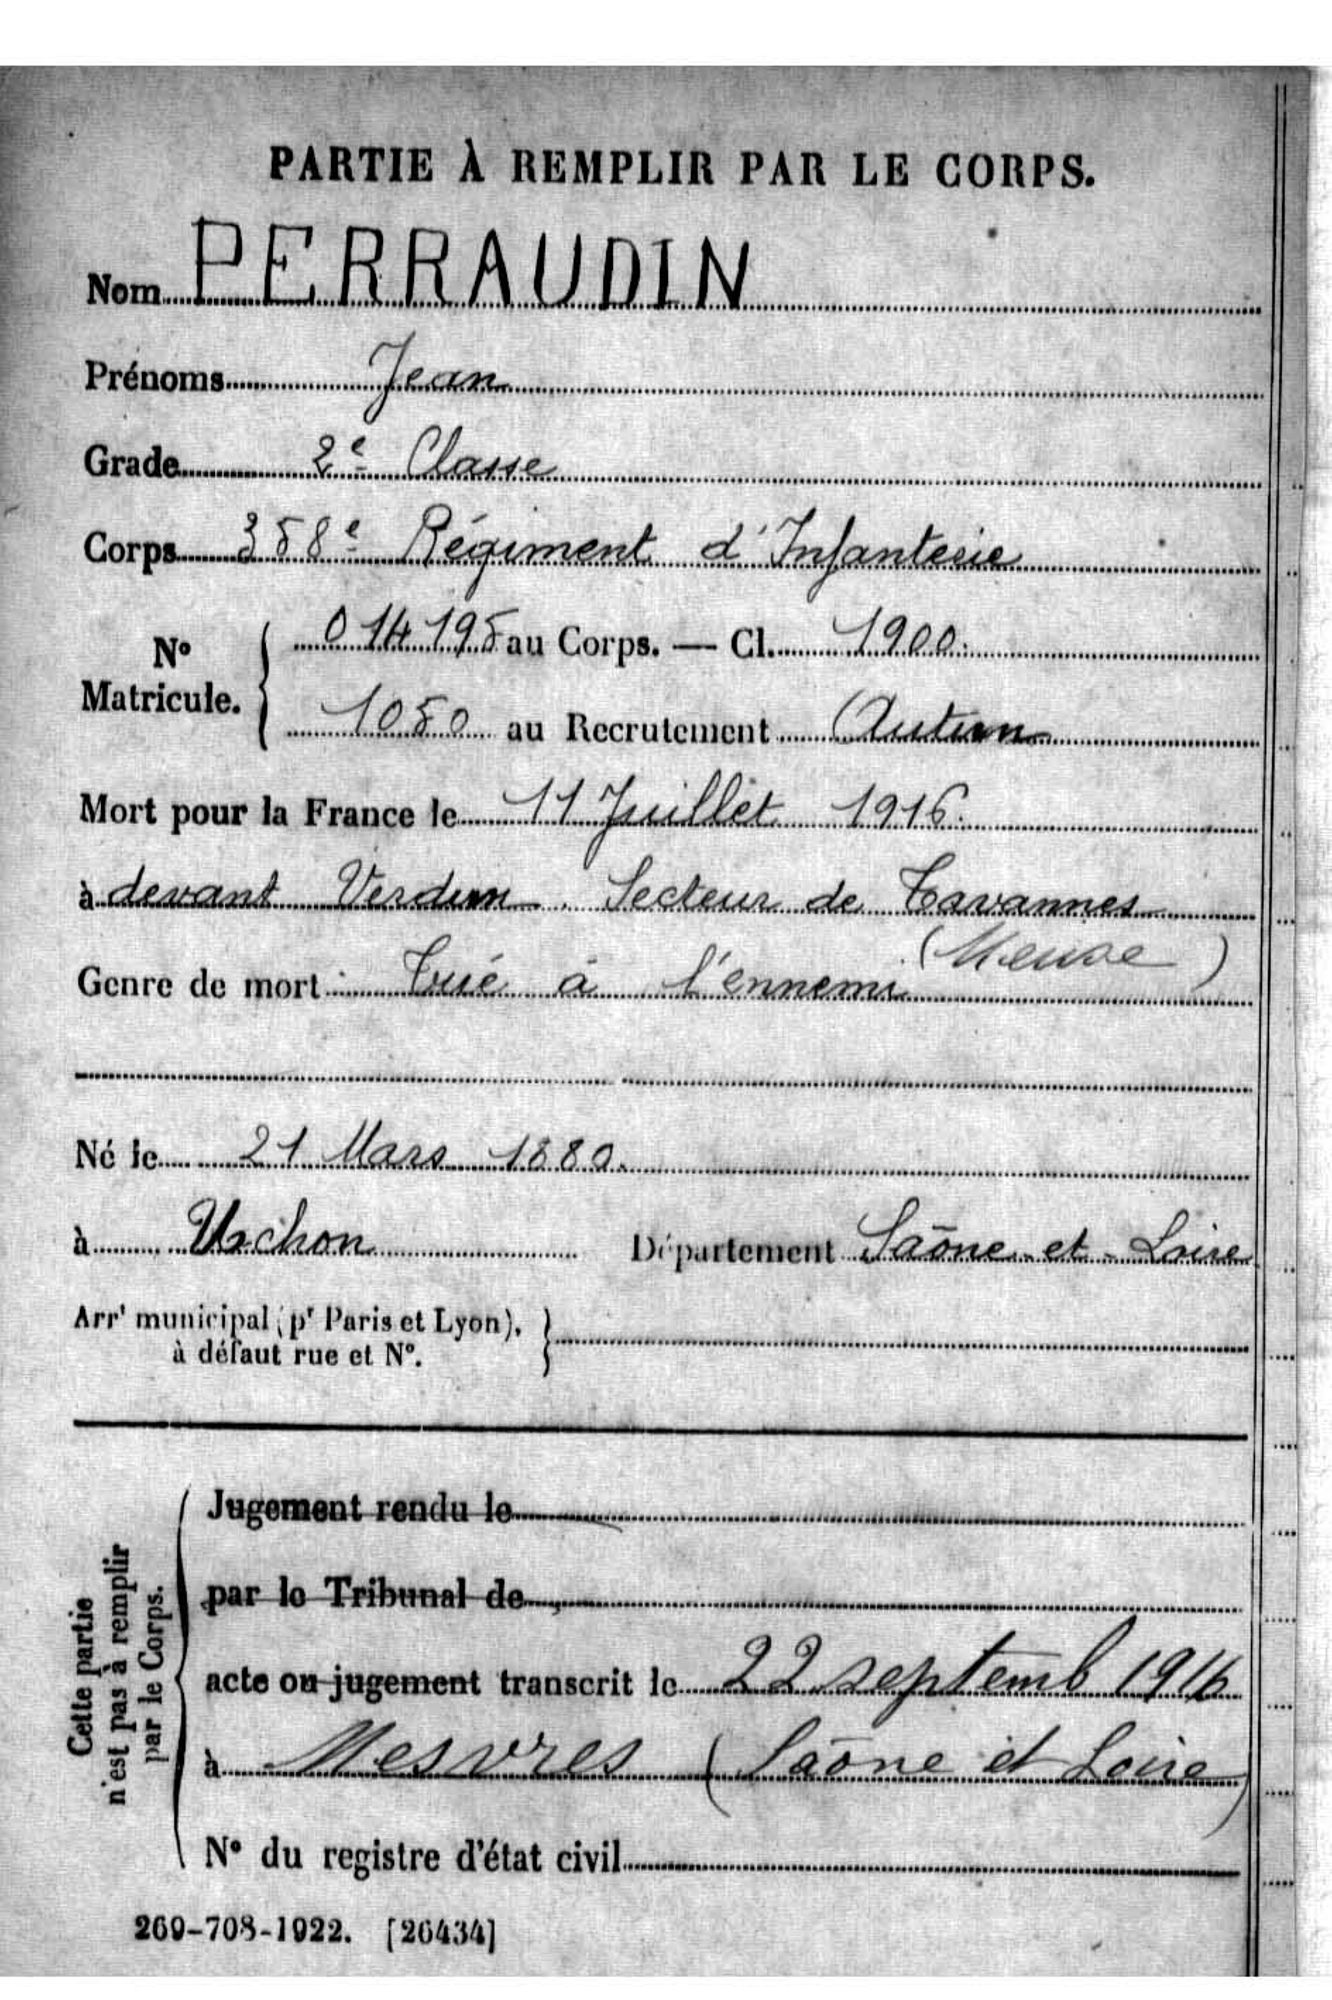 PARTIE À REMPLIR PAR LE CORPS.
Nom PERRAUDIN
Prénoms Jean
Grade 2e Classe
Corps 358e Régiment d'Infanterie
No Matricule. 014195 au Corps. — Cl. 1900.
1050 au Recrutement Autun
Mort pour la France le 11 Juillet 1916.
à devant Verdun. Secteur de Tavannes
(Meuse)
Genre de mort : Tué à l'ennemi
Né le 21 Mars 1880.
à Uchon Département Saône-et-Loire
Arrt municipal (pr Paris et Lyon),
à défaut rue et No.
Cette partie
n'est pas à remplir
par le Corps.
Jugement rendu le
par le Tribunal de
acte ou jugement transcrit le 22 septemb 1916
à Mesvres (Saône et Loire)
No du registre d'état civil
269-708-1922. [26434]